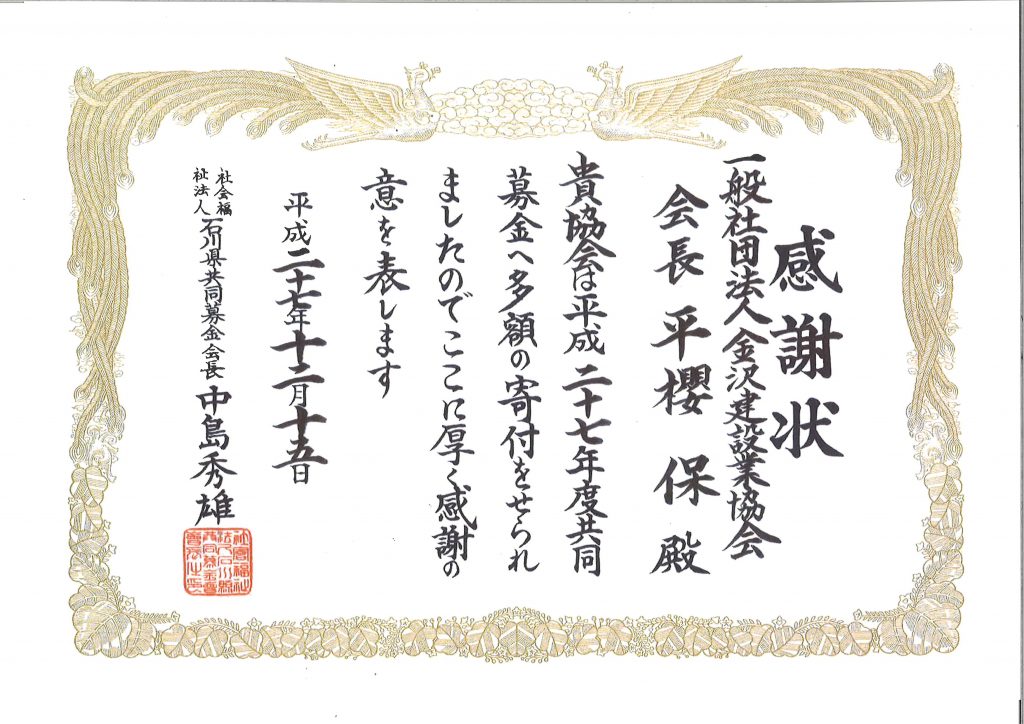 感謝状
一般社団法人金沢建設業協会
会長 平櫻 保 殿
貴協会は平成二十七年度共同
募金へ多額の寄付をせられ
ましたのでここに厚く感謝の
意を表します
平成二十七年十二月十五日
社会福祉法人 石川県共同募金会長 中島秀雄